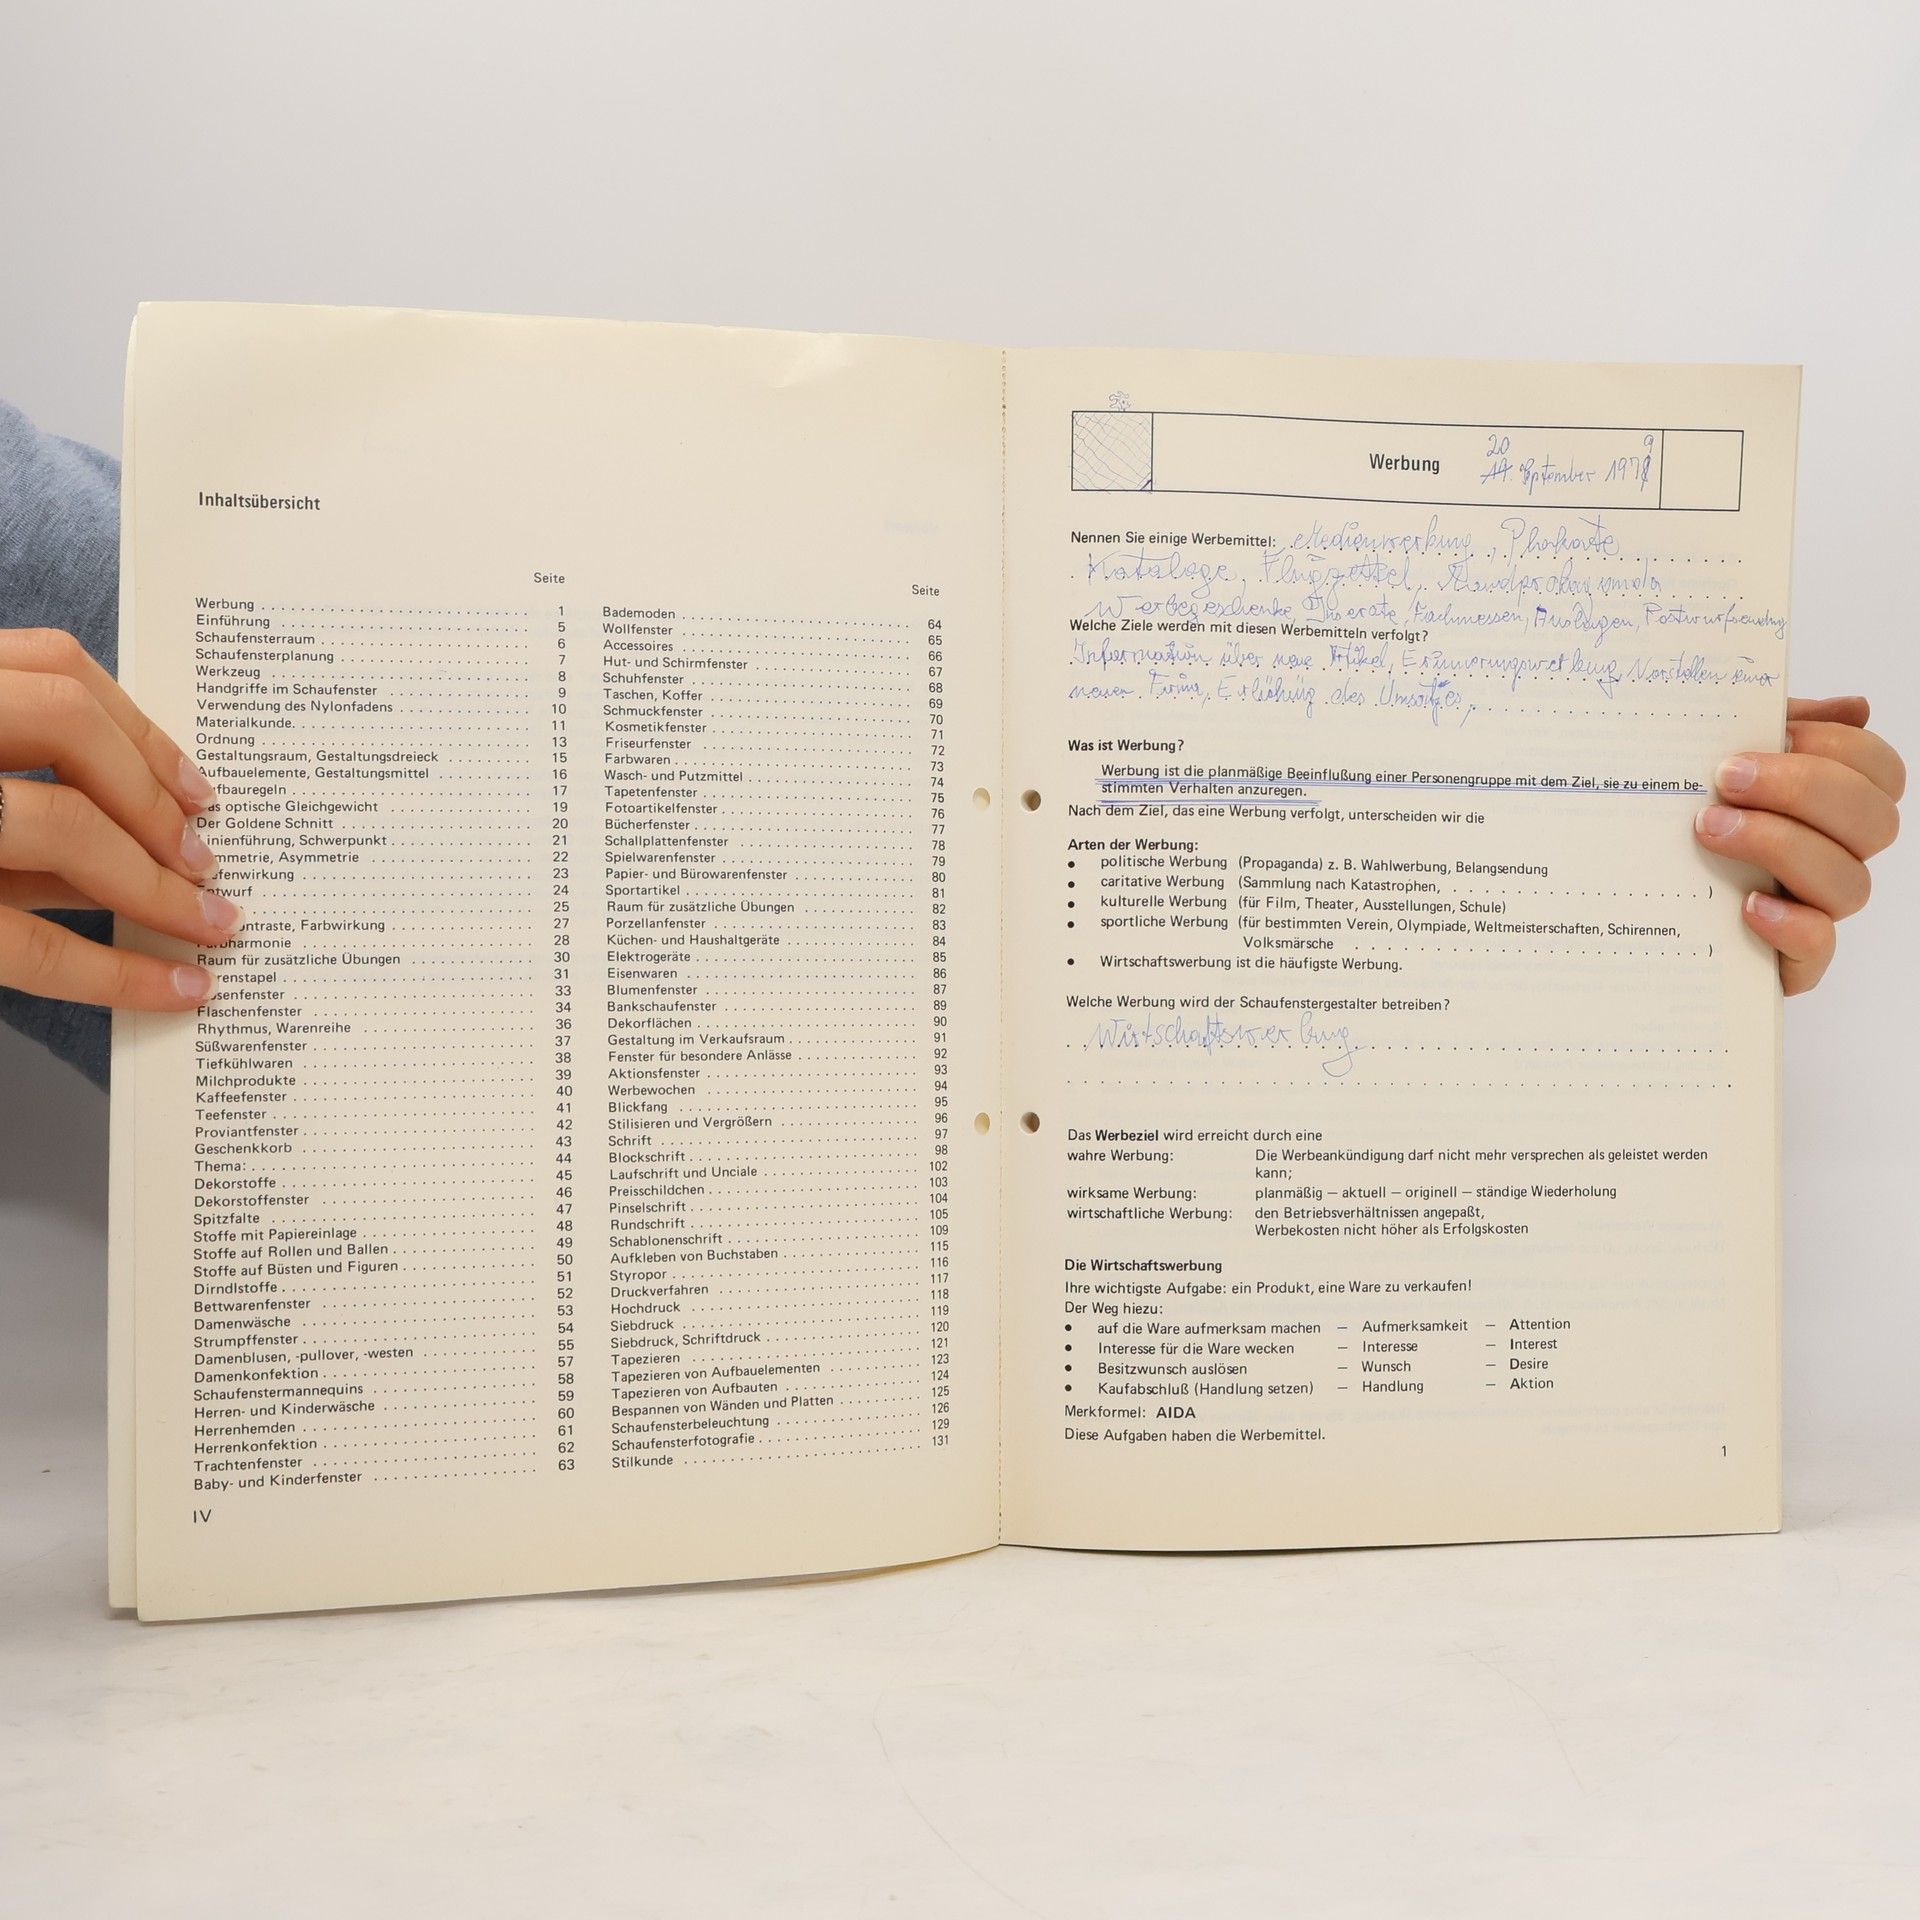 Inhaltsübersicht
Seite
Werbung 1
Einführung 5
Schaufensterraum 6
Schaufensterplanung 7
Werkzeug 8
Handgriffe im Schaufenster 9
Verwendung des Nylonfadens 10
Materialkunde. 11
Ordnung 13
Gestaltungsraum, Gestaltungsdreieck 15
Aufbauelemente, Gestaltungsmittel 16
Aufbauregeln 17
Das optische Gleichgewicht 19
Der Goldene Schnitt 20
Linienführung, Schwerpunkt 21
Symmetrie, Asymmetrie 22
Tiefenwirkung 23
Entwurf 24
25
Farbkontraste, Farbwirkung 27
Farbharmonie 28
Raum für zusätzliche Übungen 30
Warenstapel 31
Dosenfenster 33
Flaschenfenster 34
Rhythmus, Warenreihe 36
Süßwarenfenster 37
Tiefkühlwaren 38
Milchprodukte 39
Kaffeefenster 40
Teefenster 41
Proviantfenster 42
Geschenkkorb 43
Thema: 44
Dekorstoffe 45
Dekorstoffenster 46
Spitzfalte 47
Stoffe mit Papiereinlage 48
Stoffe auf Rollen und Ballen 49
Stoffe auf Büsten und Figuren 50
Dirndlstoffe 51
Bettwarenfenster 52
Damenwäsche 53
Strumpffenster 54
Damenblusen, -pullover, -westen 55
Damenkonfektion 57
Schaufenstermannequins 58
Herren- und Kinderwäsche 59
Herrenhemden 60
Herrenkonfektion 61
Trachtenfenster 62
Baby- und Kinderfenster 63
IV
Seite
Bademoden 64
Wollfenster 65
Accessoires 66
Hut- und Schirmfenster 67
Schuhfenster 68
Taschen, Koffer 69
Schmuckfenster 70
Kosmetikfenster 71
Friseurfenster 72
Farbwaren 73
Wasch- und Putzmittel 74
Tapetenfenster 75
Fotoartikelfenster 76
Bücherfenster 77
Schallplattenfenster 78
Spielwarenfenster 79
Papier- und Bürowarenfenster 80
Sportartikel 81
Raum für zusätzliche Übungen 82
Porzellanfenster 83
Küchen- und Haushaltgeräte 84
Elektrogeräte 85
Eisenwaren 86
Blumenfenster 87
Bankschaufenster 89
Dekorflächen 90
Gestaltung im Verkaufsraum 91
Fenster für besondere Anlässe 92
Aktionsfenster 93
Werbewochen 94
Blickfang 95
Stilisieren und Vergrößern 96
Schrift 97
Blockschrift 98
Laufschrift und Unciale 102
Preisschildchen 103
Pinselschrift 104
Rundschrift 105
Schablonenschrift 109
Aufkleben von Buchstaben 115
Styropor 116
Druckverfahren 117
Hochdruck 118
Siebdruck 119
Siebdruck, Schriftdruck 120
Tapezieren 121
Tapezieren von Aufbauelementen 123
Tapezieren von Aufbauten 124
Bespannen von Wänden und Platten 125
Schaufensterbeleuchtung 126
Schaufensterfotografie 129
Stilkunde 131
Werbung 20 14. September 1978 9
Nennen Sie einige Werbemittel: Medienwerbung, Plakate
Kataloge, Flugzettel,
Werbegeschenke, Inserate, Fachmessen, Auslagen, Postwurfsendung
Welche Ziele werden mit diesen Werbemitteln verfolgt?
Information über neue Artikel, Erinnerungswerbung, Vorstellen einer
neuen Firma, Erhöhung des Umsatzes,
Was ist Werbung?
Werbung ist die planmäßige Beeinflußung einer Personengruppe mit dem Ziel, sie zu einem be-
stimmten Verhalten anzuregen.
Nach dem Ziel, das eine Werbung verfolgt, unterscheiden wir die
Arten der Werbung:
• politische Werbung (Propaganda) z. B. Wahlwerbung, Belangsendung
• caritative Werbung (Sammlung nach Katastrophen, )
• kulturelle Werbung (für Film, Theater, Ausstellungen, Schule)
• sportliche Werbung (für bestimmten Verein, Olympiade, Weltmeisterschaften, Schirennen,
Volksmärsche )
• Wirtschaftswerbung ist die häufigste Werbung.
Welche Werbung wird der Schaufenstergestalter betreiben?
Wirtschaftswerbung
Das Werbeziel wird erreicht durch eine
wahre Werbung: Die Werbeankündigung darf nicht mehr versprechen als geleistet werden
kann;
wirksame Werbung: planmäßig — aktuell — originell — ständige Wiederholung
wirtschaftliche Werbung: den Betriebsverhältnissen angepaßt,
Werbekosten nicht höher als Erfolgskosten
Die Wirtschaftswerbung
Ihre wichtigste Aufgabe: ein Produkt, eine Ware zu verkaufen!
Der Weg hiezu:
• auf die Ware aufmerksam machen — Aufmerksamkeit — Attention
• Interesse für die Ware wecken — Interesse — Interest
• Besitzwunsch auslösen — Wunsch — Desire
• Kaufabschluß (Handlung setzen) — Handlung — Aktion
Merkformel: AIDA
Diese Aufgaben haben die Werbemittel.
1